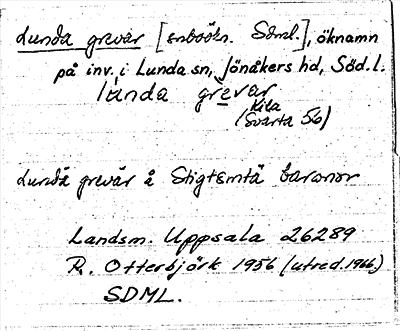 Lunda grevar [snboökn. Sdml.], öknamn
på inv. i Lunda sn, Jönåkers hd, Söd.l.
lùnda grevar
Kila
(Svärta 56)
Lundä grevär å Stigtomtä baronor
Landsm. Uppsala 26289
R. Otterbjörk 1956 (utred. 1966)
SDML.